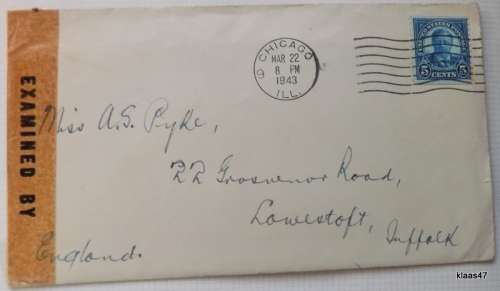 EXAMINED BY
CHICAGO
MAR 22
8 PM
1943
ILL.
5 CENTS 5
Miss A.S. Pyke,
22 Grosvenor Road,
Lowestoft,
Suffolk
England.
klaas47